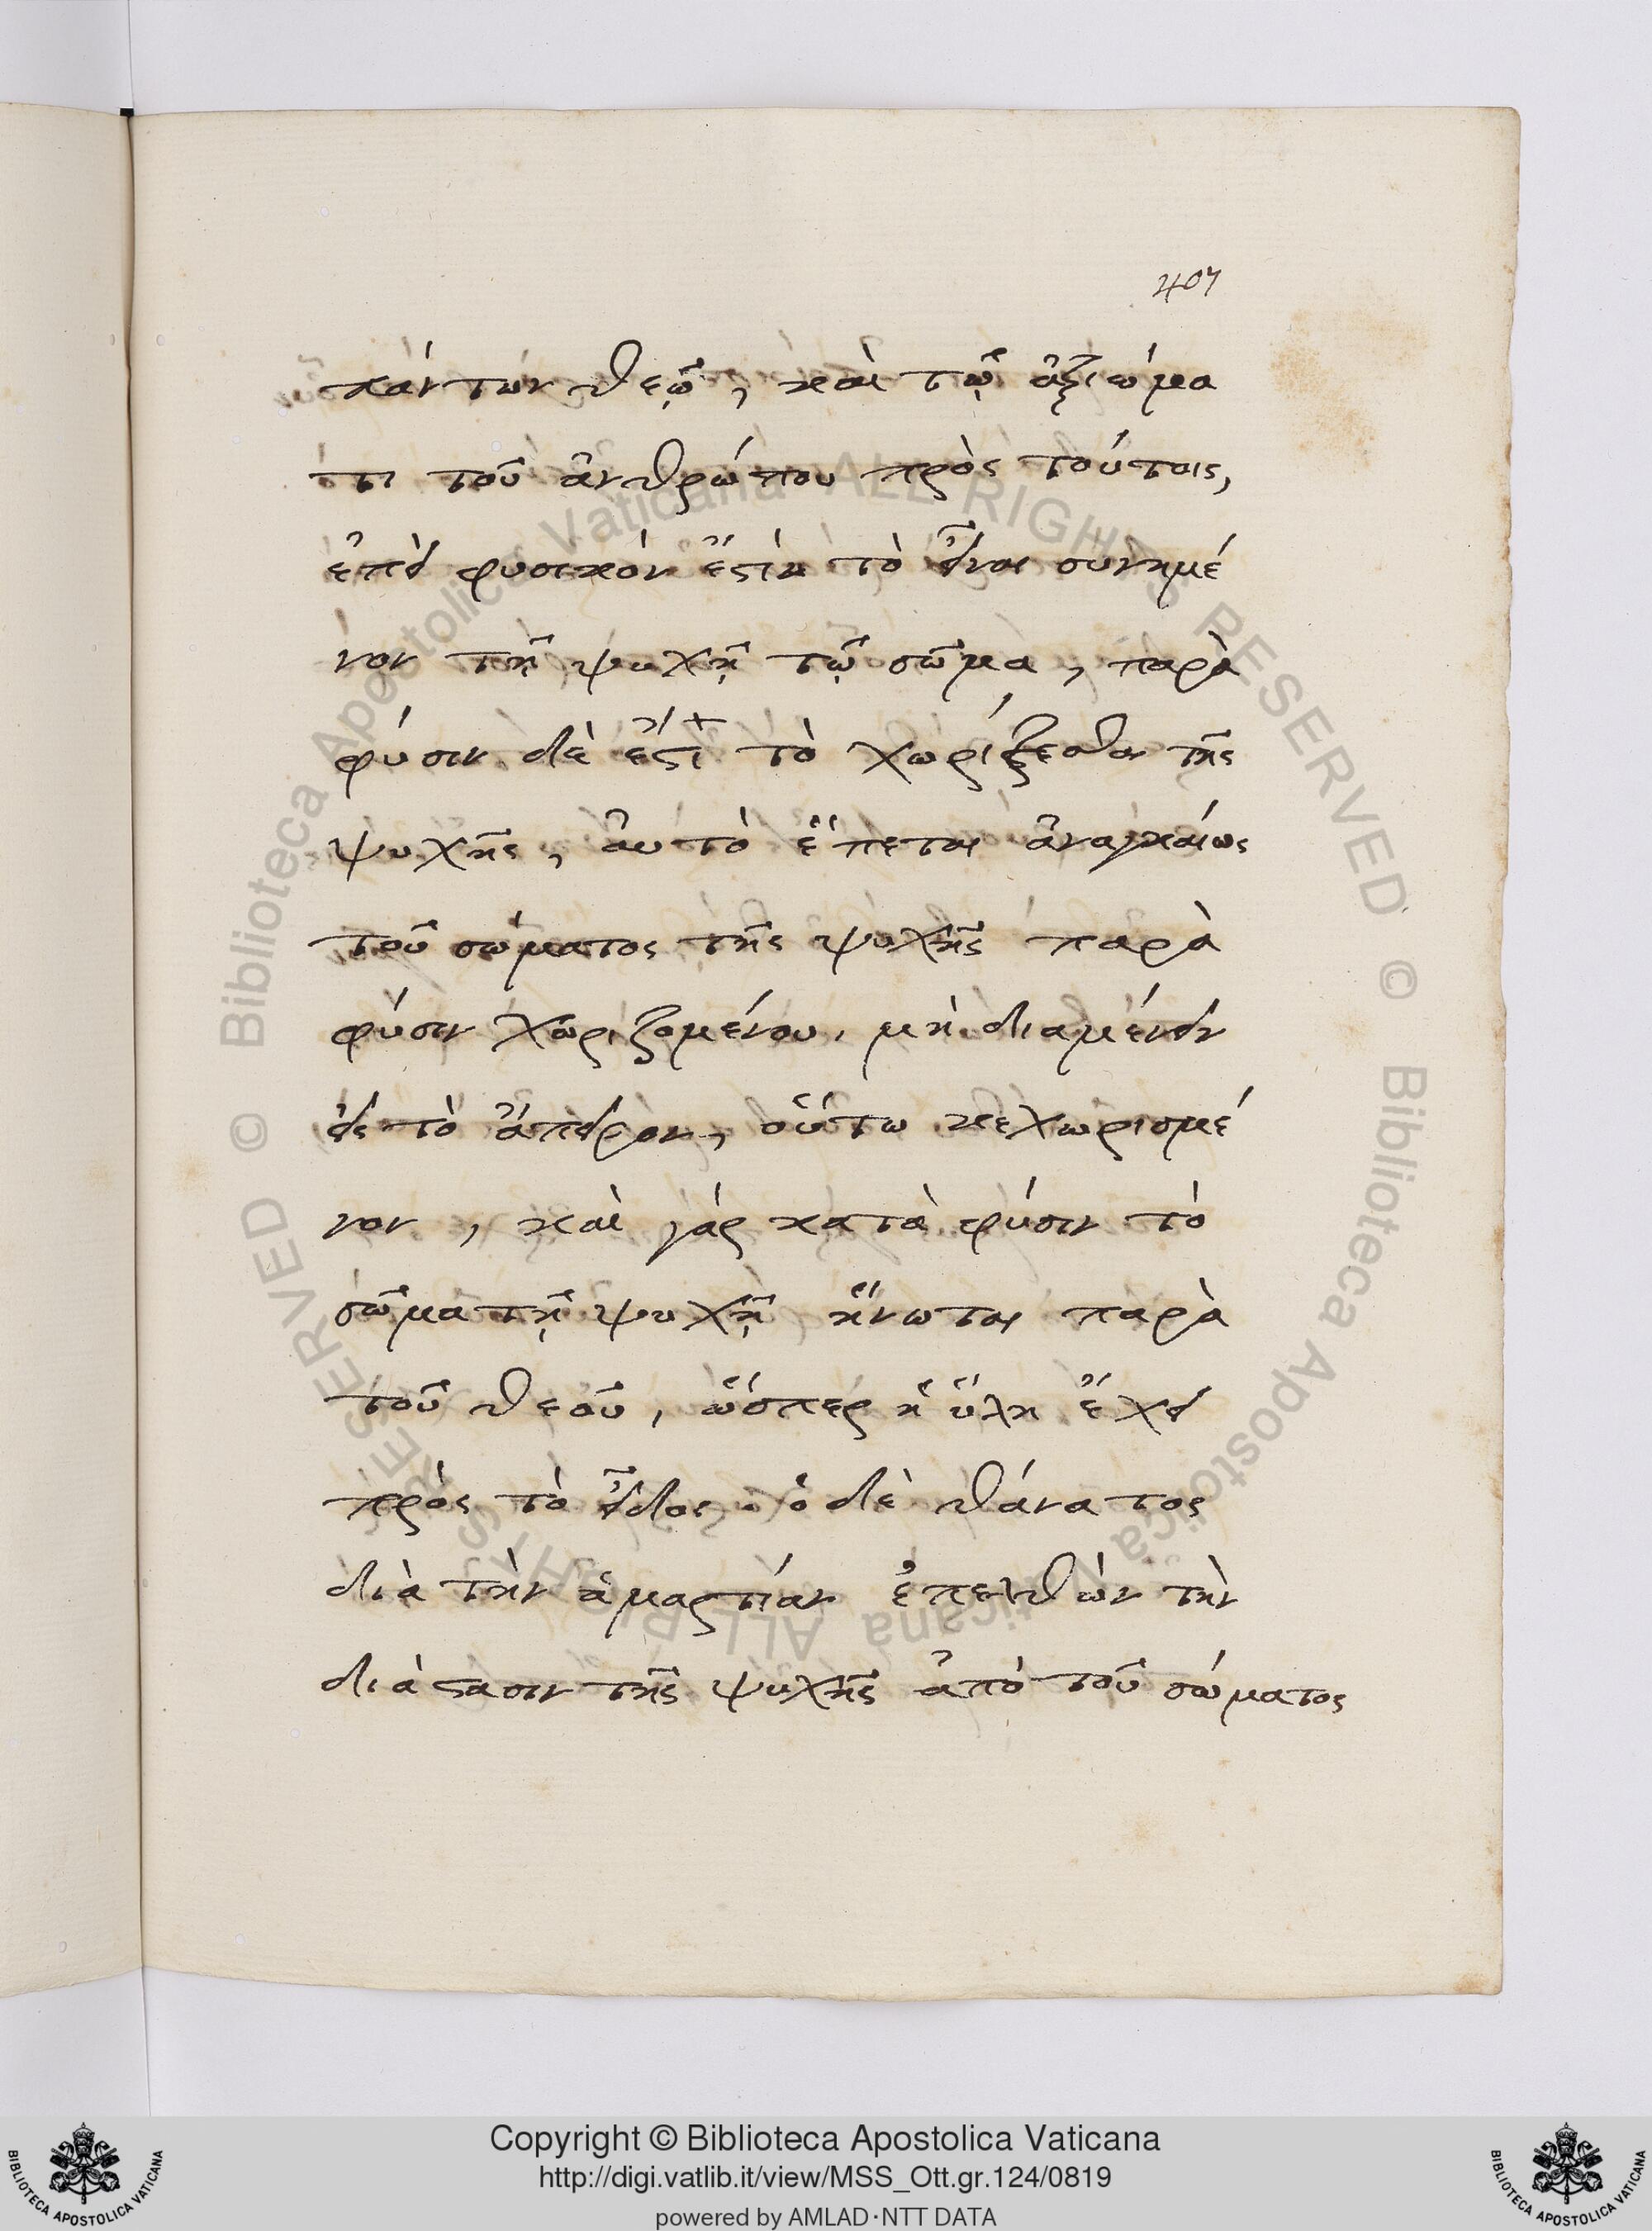 407
πάντων θεῷ, καὶ τῷ ἀξιώμα
τι τοῦ ἀνθρώπου πρὸς τούτοις,
ἐπεὶ φυσικόν ἐστιν τὸ εἶναι συνημέ
νον τῇ ψυχῇ τῷ σῶμα, παρὰ
φύσιν δὲ ἐστὶ τὸ χωρίζεσθαι τῆς
ψυχῆς, ἀυτὸ ἕπεται ἀναγκαίως
τοῦ σώματος τῆς ψυχῆς παρὰ
φύσιν χωριζομένου, μὴ διαμένειν
εἰς τὸ ἄπειρον, οὕτω κεχωρισμέ
νον, καὶ γάρ κατὰ φύσιν τὸ
σῶμα τῇ ψυχῇ ἥνωται παρὰ
τοῦ θεοῦ, ὥσπερ ἡ ὕλη ἔχει
πρὸς τὸ εἶδος. ὁ δὲ θάνατος
διὰ τὴν ἁμαρτίαν ἐπελθὼν τὴν
διάστασιν τῆς ψυχῆς ἀπὸ τοῦ σώματος
© Biblioteca Apostolica Vaticana ALL RIGHTS RESERVED © Biblioteca Apostolica Vaticana ALL RIGHTS RESERVED
Copyright © Biblioteca Apostolica Vaticana
http://digi.vatlib.it/view/MSS_Ott.gr.124/0819
powered by AMLAD·NTT DATA
BIBLIOTECA APOSTOLICA VATICANA
BIBLIOTECA APOSTOLICA VATICANA